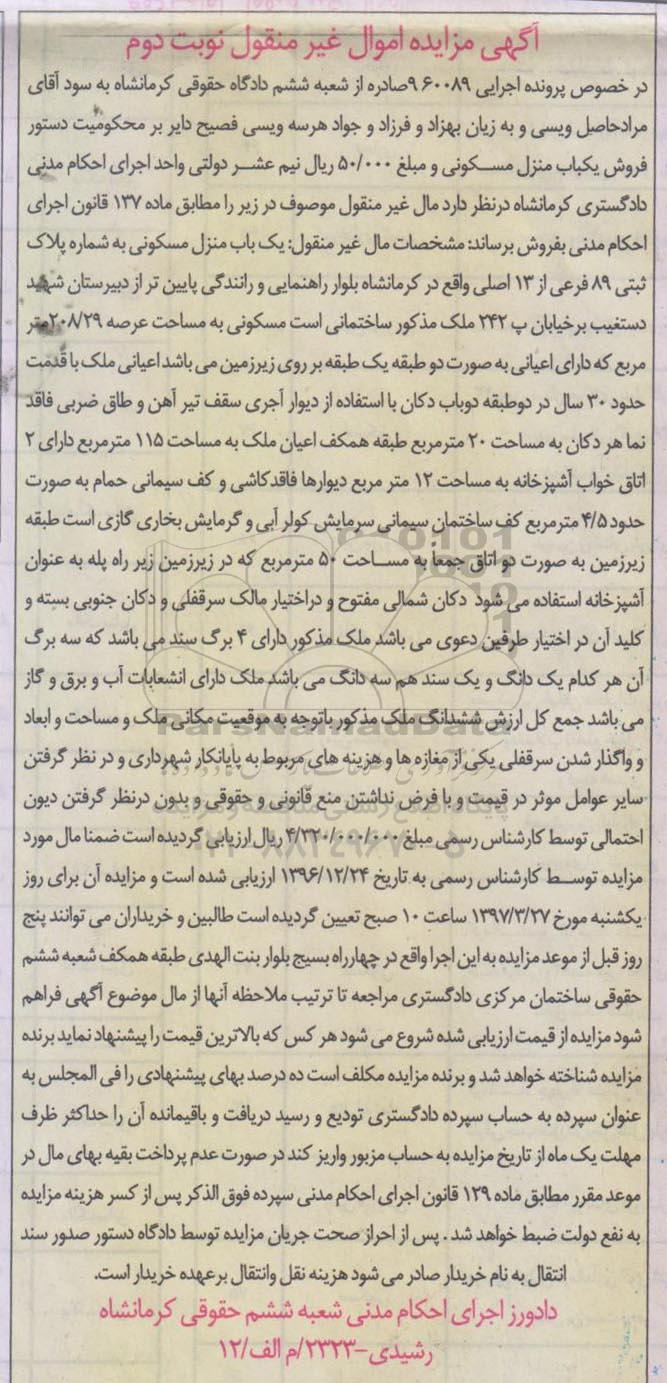 آگهی مزایده اموال غیر منقول نوبت دوم
در خصوص پرونده اجرایی ۹۶۰۰۸۹صادره از شعبه ششم دادگاه حقوقی کرمانشاه به سود آقای
مرادحاصل ویسی و به زیان بهزاد و فرزاد و جواد هرسه ویسی فصیح دایر بر محکومیت دستور
فروش یکباب منزل مسکونی و مبلغ ۵۰/۰۰۰ ریال نیم عشر دولتی واحد اجرای احکام مدنی
دادگستری کرمانشاه درنظر دارد مال غیر منقول موصوف در زیر را مطابق ماده ۱۳۷ قانون اجرای
احکام مدنی بفروش برساند: مشخصات مال غیر منقول: یک باب منزل مسکونی به شماره پلاک
ثبتی ۸۹ فرعی از ۱۳ اصلی واقع در کرمانشاه بلوار راهنمایی و رانندگی پایین تر از دبیرستان شهید
دستغیب برخیابان پ ۲۴۲ ملک مذکور ساختمانی است مسکونی به مساحت عرصه ۲۰۸/۲۹متر
مربع که دارای اعیانی به صورت دو طبقه یک طبقه بر روی زیرزمین می باشد اعیانی ملک با قدمت
حدود ۳۰ سال در دوطبقه دوباب دکان با استفاده از دیوار آجری سقف تیر آهن و طاق ضربی فاقد
نما هر دکان به مساحت ۲۰ مترمربع طبقه همکف اعیان ملک به مساحت ۱۱۵ مترمربع دارای ۲
اتاق خواب آشپزخانه به مساحت ۱۲ متر مربع دیوارها فاقدکاشی و کف سیمانی حمام به صورت
حدود ۴/۵ مترمربع کف ساختمان سیمانی سرمایش کولر آبی و گرمایش بخاری گازی است طبقه
زیرزمین به صورت دو اتاق جمعا به مساحت ۵۰ مترمربع که در زیرزمین زیر راه پله به عنوان
آشپزخانه استفاده می شود دکان شمالی مفتوح و دراختیار مالک سرقفلی و دکان جنوبی بسته و
کلید آن در اختیار طرفین دعوی می باشد ملک مذکور دارای ۴ برگ سند می باشد که سه برگ
آن هر کدام یک دانگ و یک سند هم سه دانگ می باشد ملک دارای انشعابات آب و برق و گاز
می باشد جمع کل ارزش ششدانگ ملک مذکور باتوجه به موقعیت مکانی ملک و مساحت و ابعاد
و واگذار شدن سرقفلی یکی از مغازه ها و هزینه های مربوط به پایانکار شهرداری و در نظر گرفتن
سایر عوامل موثر در قیمت و با فرض نداشتن منع قانونی و حقوقی و بدون درنظر گرفتن دیون
احتمالی توسط کارشناس رسمی مبلغ ۴/۳۲۰/۰۰۰/۰۰۰ ریال ارزیابی گردیده است ضمنا مال مورد
مزایده توسط کارشناس رسمی به تاریخ ۱۳۹۶/۱۲/۲۴ ارزیابی شده است و مزایده آن برای روز
یکشنبه مورخ ۱۳۹۷/۳/۲۷ ساعت ۱۰ صبح تعیین گردیده است طالبین و خریداران می توانند پنج
روز قبل از موعد مزایده به این اجرا واقع در چهارراه بسیج بلوار بنت الهدی طبقه همکف شعبه ششم
حقوقی ساختمان مرکزی دادگستری مراجعه تا ترتیب ملاحظه آنها از مال موضوع آگهی فراهم
شود مزایده از قیمت ارزیابی شده شروع می شود هر کس که بالاترین قیمت را پیشنهاد نماید برنده
مزایده شناخته خواهد شد و برنده مزایده مکلف است ده درصد بهای پیشنهادی را فی المجلس به
عنوان سپرده به حساب سپرده دادگستری تودیع و رسید دریافت و باقیمانده آن را حداکثر ظرف
مهلت یک ماه از تاریخ مزایده به حساب مزبور واریز کند در صورت عدم پرداخت بقیه بهای مال در
موعد مقرر مطابق ماده ۱۲۹ قانون اجرای احکام مدنی سپرده فوق الذکر پس از کسر هزینه مزایده
به نفع دولت ضبط خواهد شد . پس از احراز صحت جریان مزایده توسط دادگاه دستور صدور سند
انتقال به نام خریدار صادر می شود هزینه نقل وانتقال بر عهده خریدار است.
دادورز اجرای احکام مدنی شعبه ششم حقوقی کرمانشاه
رشیدی-۲۳۲۳/م الف/۱۲